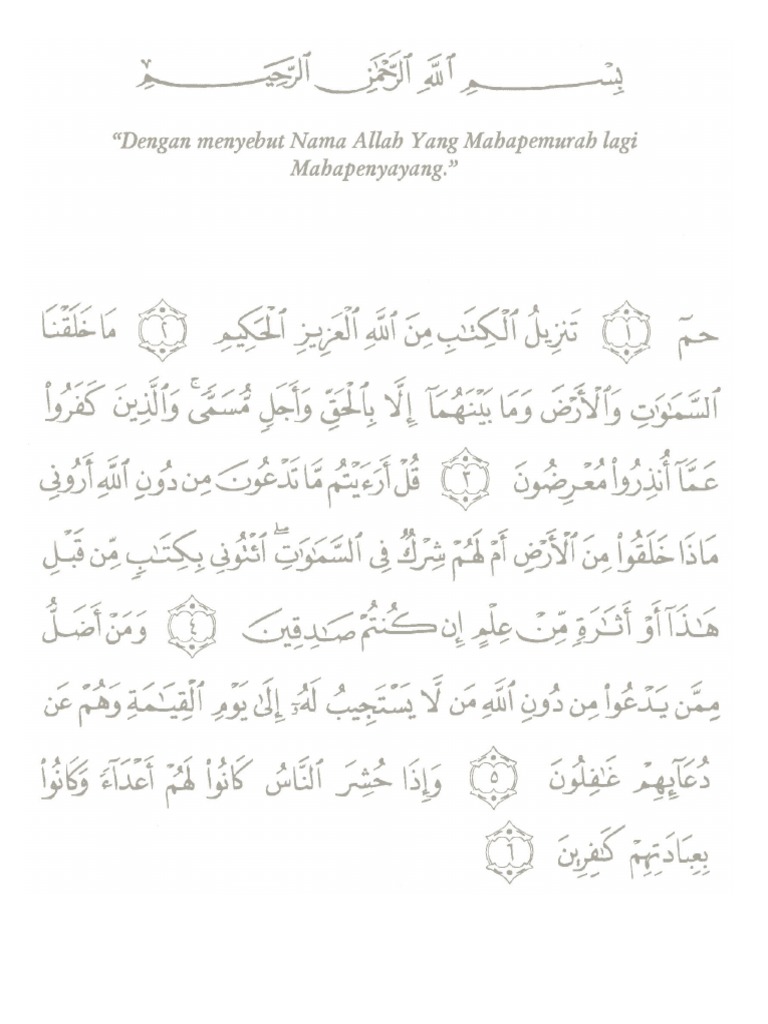 بِسْمِ ٱللَّهِ ٱلرَّحْمَٰنِ ٱلرَّحِيمِ
“Dengan menyebut Nama Allah Yang Mahapemurah lagi
Mahapenyayang.”
حمٓ ١ تَنزِيلُ ٱلْكِتَٰبِ مِنَ ٱللَّهِ ٱلْعَزِيزِ ٱلْحَكِيمِ ٢ مَا خَلَقْنَا
ٱلسَّمَٰوَٰتِ وَٱلْأَرْضَ وَمَا بَيْنَهُمَآ إِلَّا بِٱلْحَقِّ وَأَجَلٍ مُّسَمًّى ۚ وَٱلَّذِينَ كَفَرُوا۟
عَمَّآ أُنذِرُوا۟ مُعْرِضُونَ ٣ قُلْ أَرَءَيْتُم مَّا تَدْعُونَ مِن دُونِ ٱللَّهِ أَرُونِى
مَاذَا خَلَقُوا۟ مِنَ ٱلْأَرْضِ أَمْ لَهُمْ شِرْكٌ فِى ٱلسَّمَٰوَٰتِ ۖ ٱئْتُونِى بِكِتَٰبٍ مِّن قَبْلِ
هَٰذَآ أَوْ أَثَٰرَةٍ مِّنْ عِلْمٍ إِن كُنتُمْ صَٰدِقِينَ ٤ وَمَنْ أَضَلُّ
مِمَّن يَدْعُوا۟ مِن دُونِ ٱللَّهِ مَن لَّا يَسْتَجِيبُ لَهُۥٓ إِلَىٰ يَوْمِ ٱلْقِيَٰمَةِ وَهُمْ عَن
دُعَآئِهِمْ غَٰفِلُونَ ٥ وَإِذَا حُشِرَ ٱلنَّاسُ كَانُوا۟ لَهُمْ أَعْدَآءً وَكَانُوا۟
بِعِبَادَتِهِمْ كَٰفِرِينَ ٦